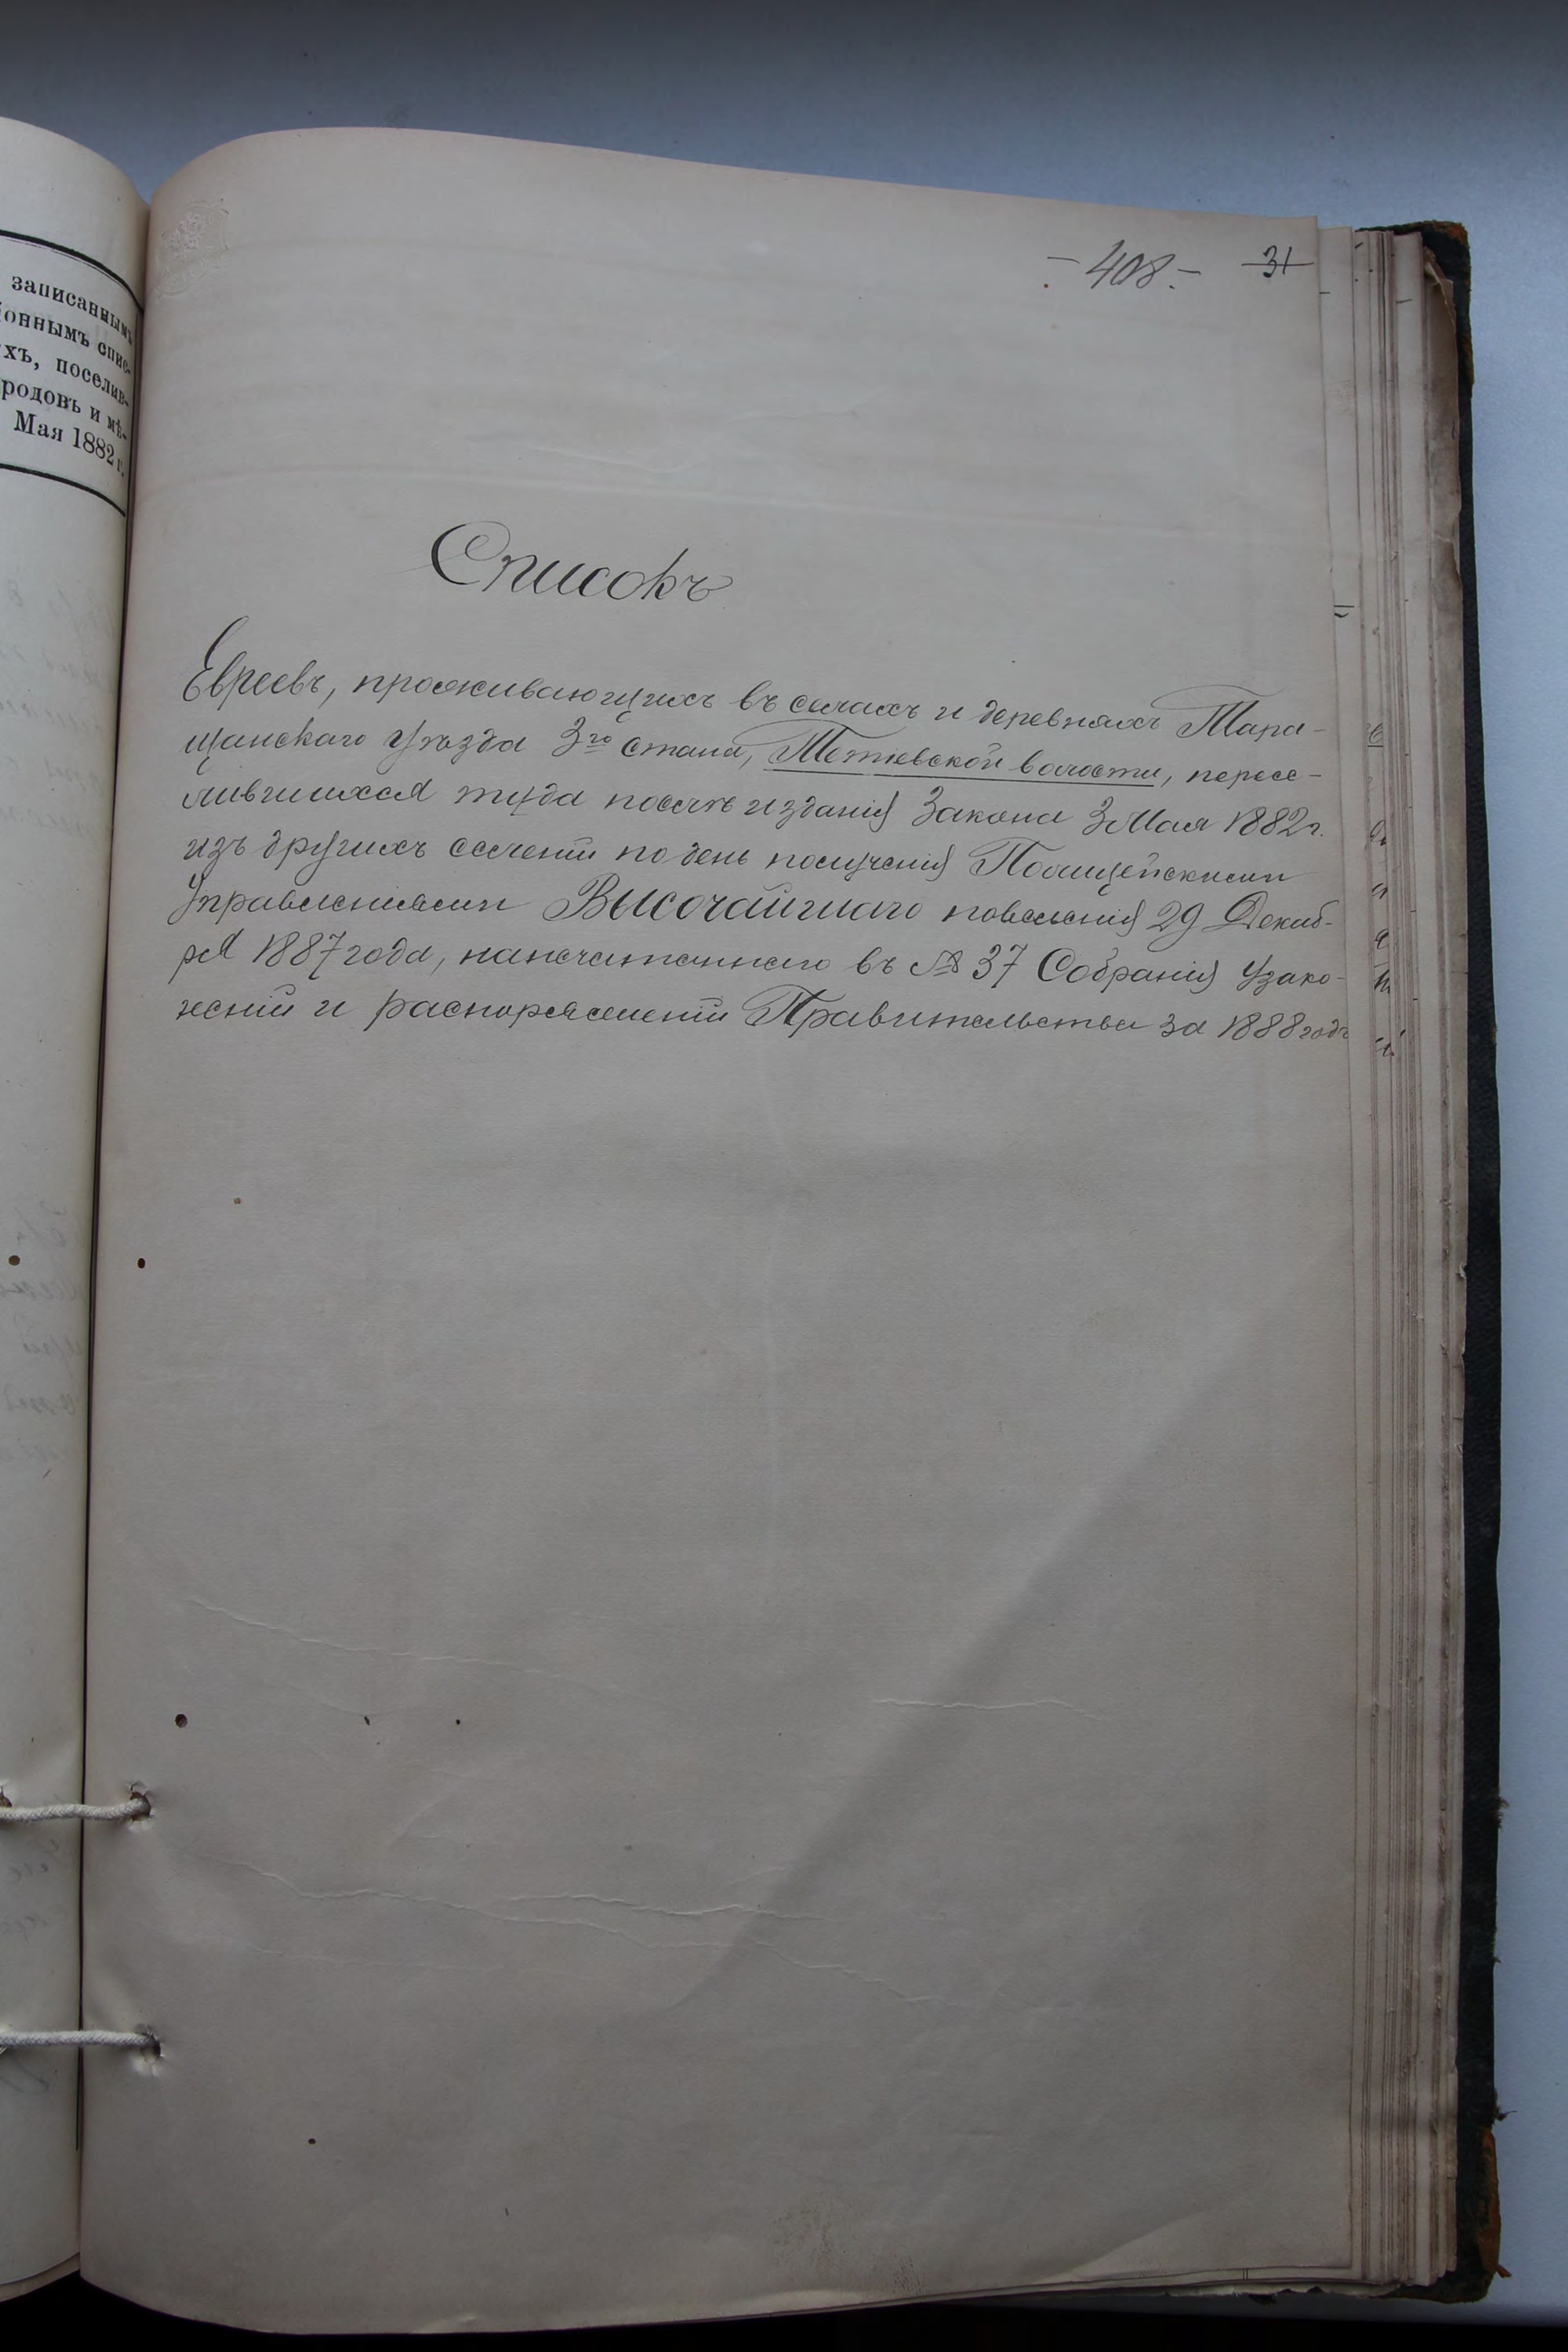 записаннымъ
оннымъ спис-
хъ, поселив-
родовъ и мѣ-
Мая 1882 г.
- 408. - 31
Списокъ
Евреевъ, проживающихъ въ селахъ и деревняхъ Тара-
щанскаго уѣзда 3го стана, Тетіевской волости, пересе-
лившихся туда послѣ изданія Закона 3 Мая 1882 г.
изъ другихъ селеній по день полученія Полицейскими
Управленіями Высочайшаго повелѣнія 29 Декаб-
ря 1887 года, напечатаннаго въ № 37 Собранія узако-
неній и распоряженій Правительства за 1888 годъ